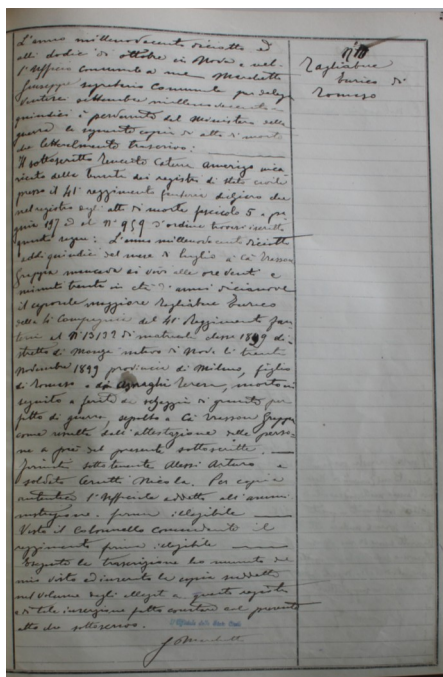 L'anno millenovecento diciotto ed
alli dodici di ottobre in Nova e nel-
l'Ufficio Comunale a me
Giuseppe segretario Comunale per delega
ventuno settembre millenovecento
quindici è pervenuto dal Ministero della
guerra la seguente copia di atto di morte
che letteralmente trascrivo:
Il sottoscritto Tenente Amerigo inca
ricato della tenuta dei registri di stato civile
presso il 41° reggimento fanteria dichiara che
nel registro degli atti di morte fascicolo 5 a pa
gina 197 ed al N° 959 d'ordine trovasi inscritto
quanto segue: L'anno millenovecento diciotto
addì quindici del mese di luglio a Cà Tresson
Grappa mancava ai vivi alle ore venti e
minuti trenta in età di anni diciannove
il caporale maggiore Tagliabue Enrico
della 4 Compagnia del 41° Reggimento fan
teria al N° 13139 di matricola classe 1899 di-
stretto di Monza nativo di Nova li trenta
Novembre 1899 provincia di Milano, figlio
di Romeo e di Teresa, morto in
seguito a ferite da scheggia di granata per
fatto di guerra, sepolto a Cà Tresson Grappa
come risulta dall'attestazione delle perso-
ne a piè del presente sottoscritte. —
Firmati sottotenente Alessi Arturo e
soldato Cerutti Nicola. Per copia
autentica l'Ufficiale addetto all'ammi
nistrazione firma illegibile
Visto il Colonnello comandante il
reggimento firma illegibile —
Eseguita la trascrizione ho munito del
mio visto ed inserita la copia suddetta
nel volume degli allegati a questo registro
e di tale inserzione fatto constare nel presente
atto che sottoscrivo.
L'Ufficiale dello Stato Civile
Tagliabue
Enrico di
Romeo